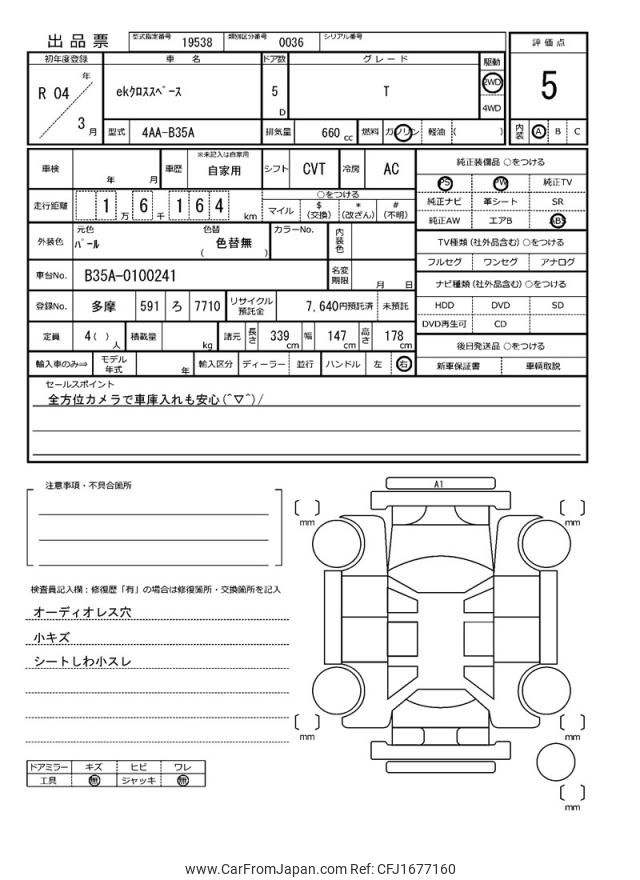 出品票
型式指定番号 19538 類別区分番号 0036 シリアル番号
評価点
5
内装 A B C
初年度登録 車名 ドア数 グレード 駆動
R 04 年 3 月
ekｸﾛｽｽﾍﾟｰｽ
5 D
T
2WD
4WD
型式 4AA-B35A 排気量 660 cc 燃料 ガソリン 軽油 ( )
車検 年 月 車歴 ※未記入は自家用 自家用 シフト CVT 冷房 AC
走行距離 1 万 6 千 1 6 4 km
○をつける
マイル $(交換) *(改ざん) #(不明)
外装色 元色 ﾊﾟｰﾙ 色替 色替無 ( ) カラーNo. 内装色
車台No. B35A-0100241 名変期限 月 日
登録No. 多摩 591 ろ 7710 リサイクル預託金 7,640円預託済 未預託
定員 4( ) 人 積載量 kg 諸元 長さ 339 cm 幅 147 cm 高さ 178 cm
輸入車のみ⇒ モデル年式 年 輸入区分 ディーラー 並行 ハンドル 左 右
純正装備品 ○をつける
PS PW 純正TV
純正ナビ 革シート SR
純正AW エアB ABS
TV種類(社外品含む)○をつける
フルセグ ワンセグ アナログ
ナビ種類(社外品含む)○をつける
HDD DVD SD
DVD再生可 CD
後日発送品 ○をつける
新車保証書 車輌取説
セールスポイント
全方位カメラで車庫入れも安心(^▽^)/
注意事項・不具合箇所
検査員記入欄：修復歴「有」の場合は修復箇所・交換箇所を記入
オーディオレス穴
小キズ
シートしわ小スレ
ドアミラー キズ ヒビ ワレ
工具 無 ジャッキ 無
A1
mm
mm
mm
mm
mm
www.CarFromJapan.com Ref: CFJ1677160